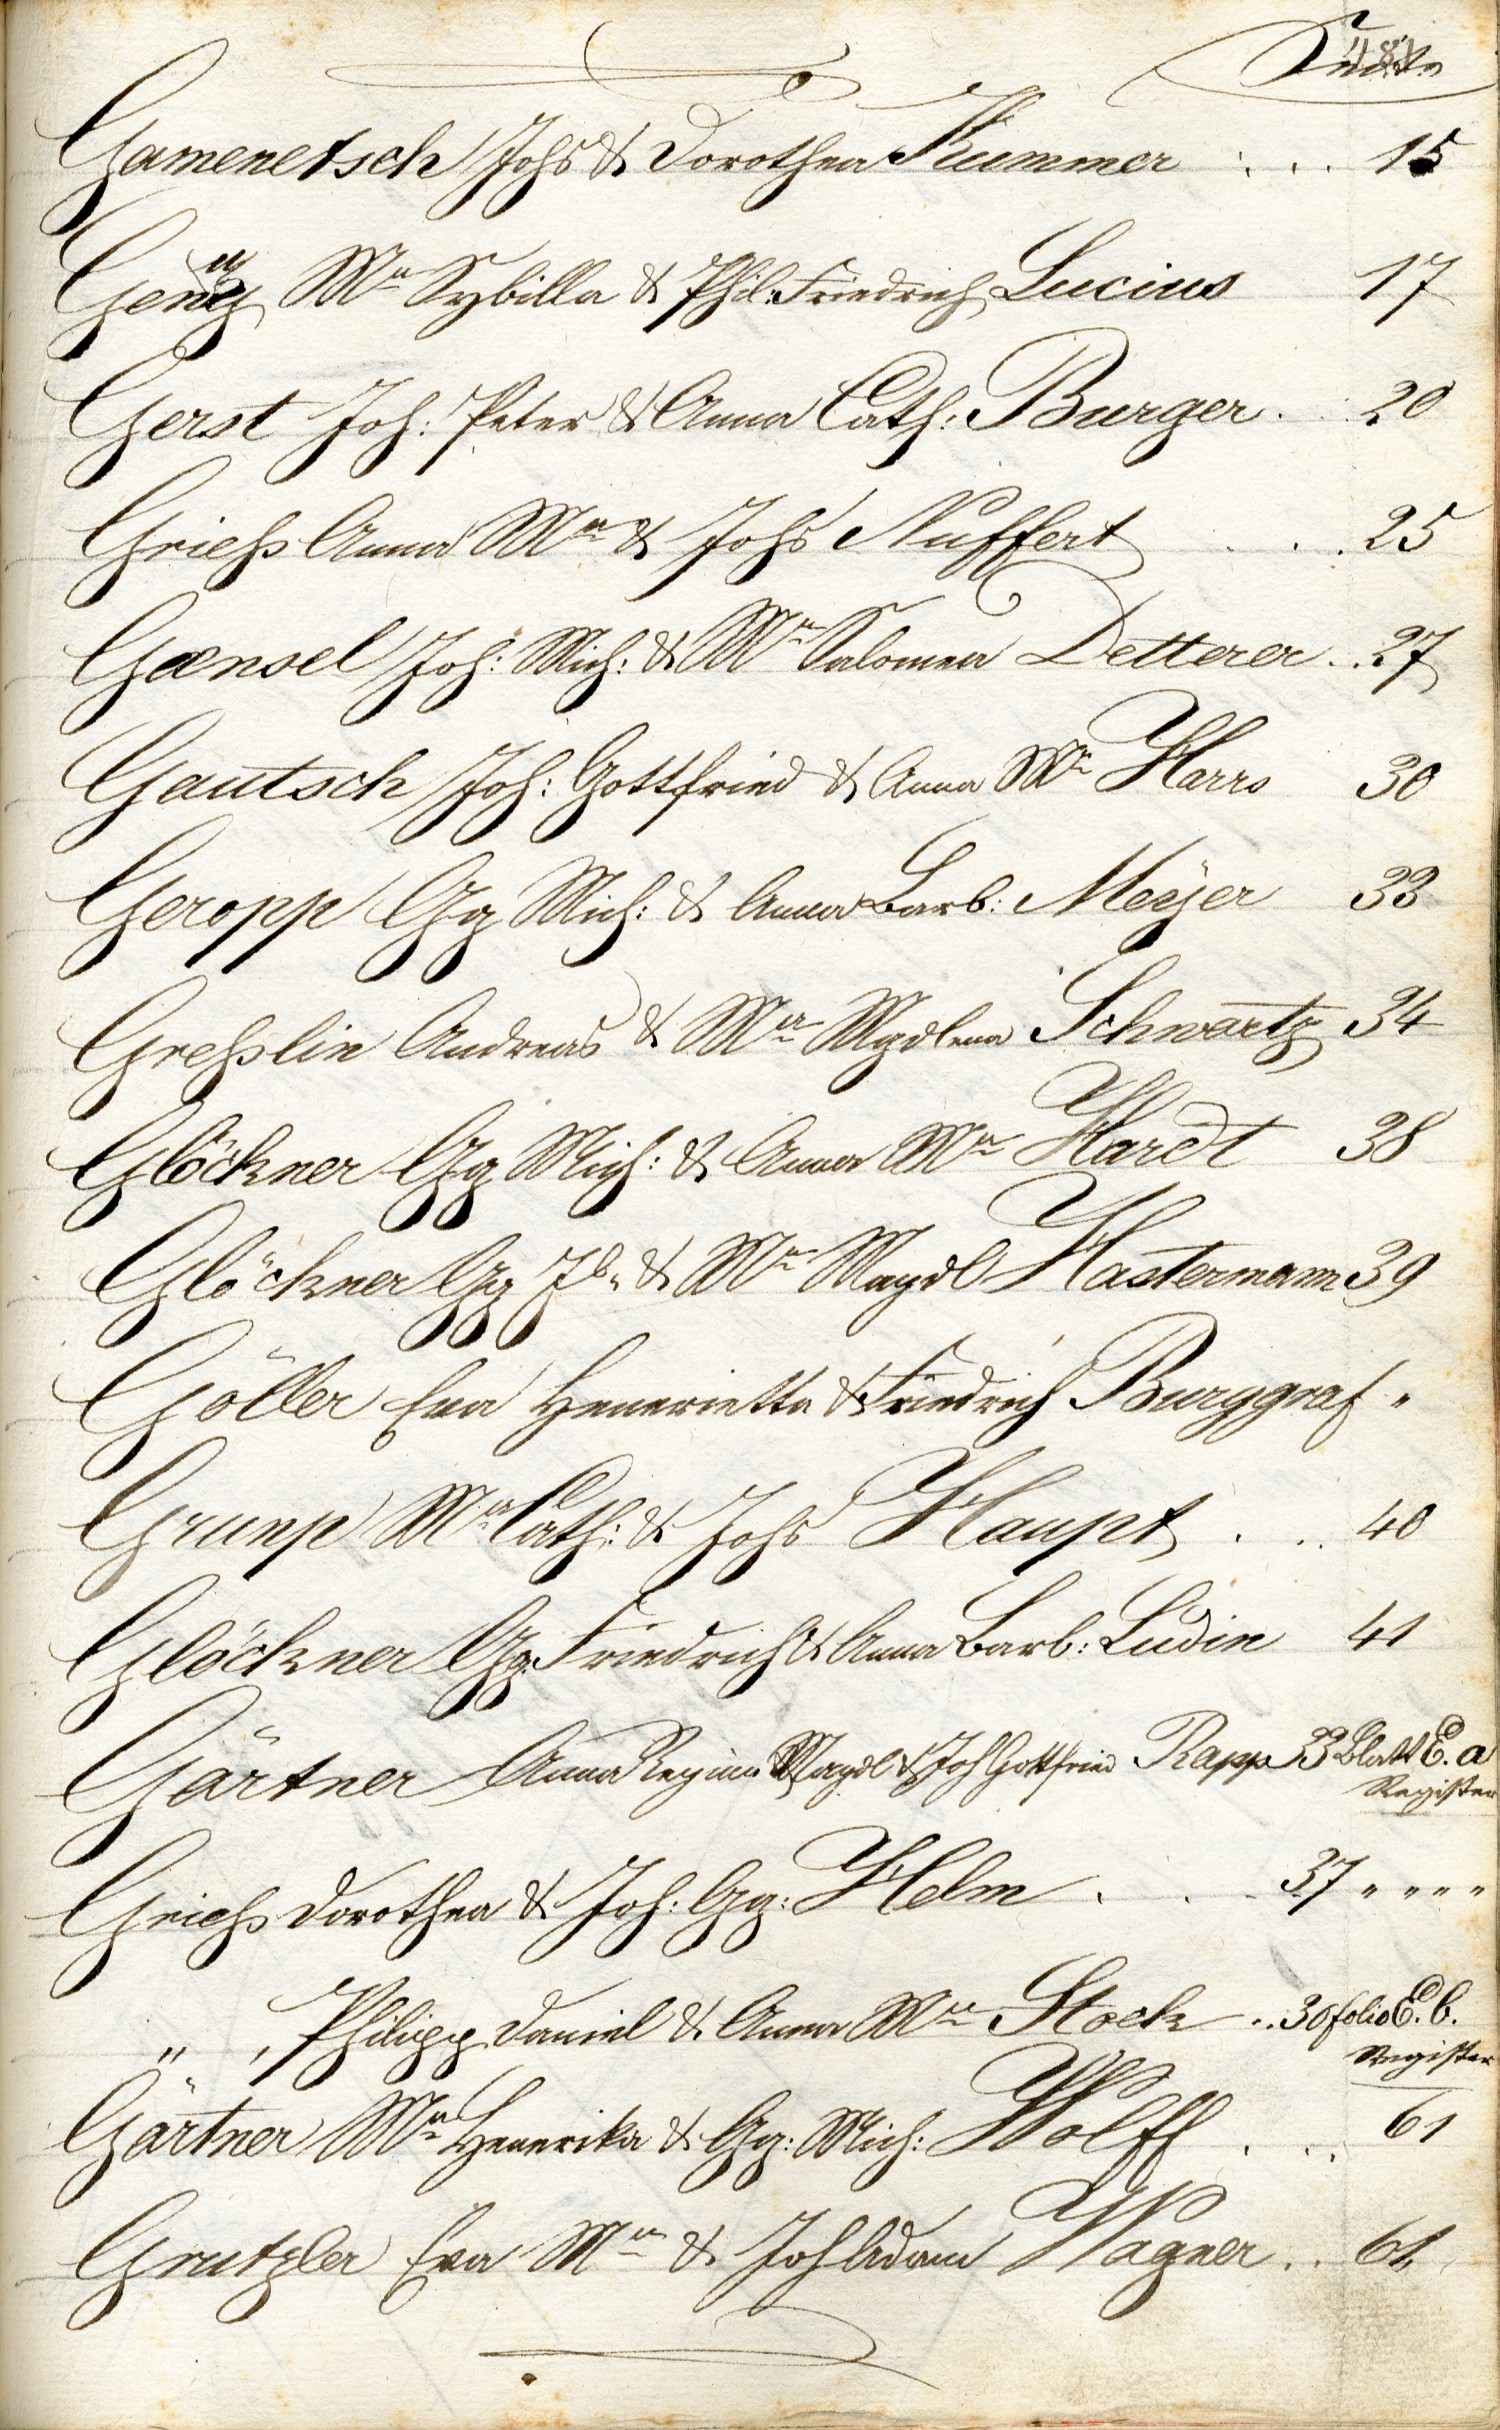 Seite
Gamenetsch Johs & Dorothea Kummer . . . 15
Genz Ma Sybilla & Phil: Friedrich Lucius 17
Gerst Joh: Peter & Anna Cath: Burger . 20
Grießs Anna Ma & Johs Nuffert . . . 25
Gænsel Joh: Mich: & Ma Salomea Detterer . . 27
Gautsch Joh: Gottfried & Anna Ma Harrs 30
Geropp Gg Mich: & Anna Barb: Meÿer 33
Greßlin Andreas & Ma Magdlena Schwartz 34
Glöckner Gg Mich: & Anna Ma Hardt 38
Glöckner Gg Jb. & Ma Magdl Hastermann 39
Göller Eva Henerietta & Friedrich Burggraf "
Grunp Ma Cath: & Johs Haupt . . . 40
Glöckner Gg: Friedrich & Anna Barb: Ludin 41
Gärtner Anna Regina Magdl & Joh Gottfried Rapp 33 Blatt E. a
Register
Grießs Dorothea & Joh: Gg: Helm . . . 37 " " " "
" , Philipp Daniel & Anna Ma Stock . . 30 folio E. b.
Register
Gärtner Ma Henerika & Gg: Mich: Wolff . . . 61
Grutzler Eva Ma & Joh Adam Wagner . . 61